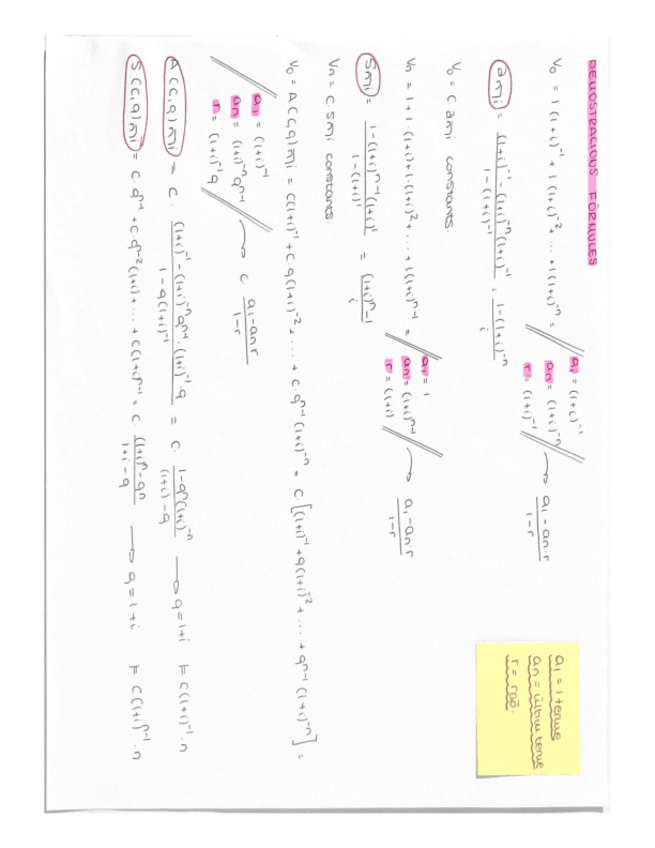 DEMOSTRACIONS FÓRMULES
V₀ = 1(1+i)⁻¹ + 1(1+i)⁻² + ... + 1(1+i)⁻ⁿ = // a₁ = (1+i)⁻¹ aₙ = (1+i)⁻ⁿ r = (1+i)⁻¹ // → (a₁ - aₙ·r)/(1-r)
a n̅ i = ((1+i)⁻¹ - (1+i)⁻ⁿ(1+i)⁻¹)/(1-(1+i)⁻¹) = (1-(1+i)⁻ⁿ)/i
V₀ = C a n̅ i constants.
Vₙ = 1+1·(1+i)+1·(1+i)²+...+1(1+i)ⁿ⁻¹ = // a₁ = 1 aₙ = (1+i)ⁿ⁻¹ r = (1+i) // → (a₁ - aₙ·r)/(1-r)
S n̅ i = (1-(1+i)ⁿ⁻¹(1+i)¹)/(1-(1+i)¹) = ((1+i)ⁿ-1)/i
Vₙ = C·S n̅ i constants.
V₀ = A(C,q) n̅ i = C(1+i)⁻¹ + C·q(1+i)⁻² + ... + C·qⁿ⁻¹(1+i)⁻ⁿ = C·[(1+i)⁻¹ + q(1+i)⁻² + ... + qⁿ⁻¹(1+i)⁻ⁿ] =
// a₁ = (1+i)⁻¹ aₙ = (1+i)⁻ⁿqⁿ⁻¹ r = (1+i)⁻¹q // → C·(a₁ - aₙ·r)/(1-r)
A(C,q) n̅ i = C·((1+i)⁻¹ - (1+i)⁻ⁿqⁿ⁻¹·(1+i)⁻¹·q)/(1-q(1+i)⁻¹) = C·(1-qⁿ(1+i)⁻ⁿ)/((1+i)-q) → q=1+i ⊨ C(1+i)⁻¹·n
S(C,q) n̅ i = C·qⁿ⁻¹ + C·qⁿ⁻²(1+i) + ... + C(1+i)ⁿ⁻¹ = C·((1+i)ⁿ-qⁿ)/(1+i-q) → q=1+i ⊨ C(1+i)ⁿ⁻¹·n
a₁ = 1 terme
aₙ = últim terme
r = raó.